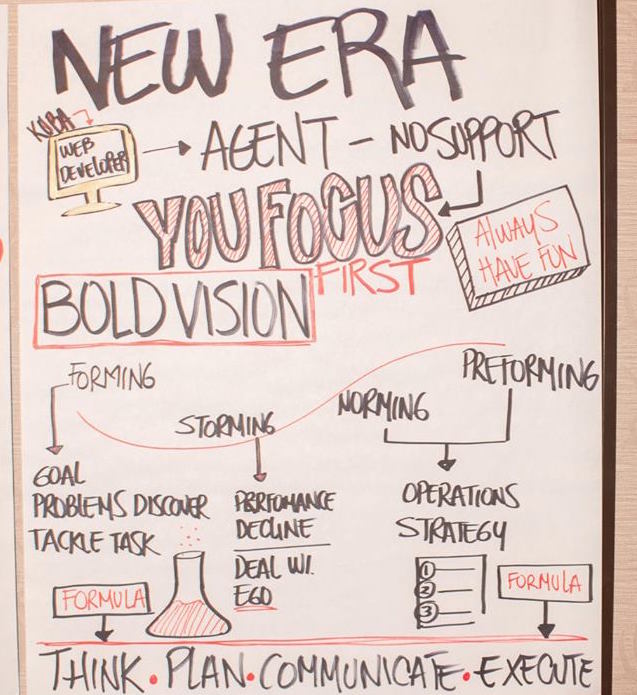 NEW ERA
KUBA
WEB
DEVELOPER
AGENT - NO SUPPORT
YOU FOCUS
FIRST
ALWAYS
HAVE FUN
BOLD VISION
FORMING
STORMING
NORMING
PREFORMING
GOAL
PROBLEMS DISCOVER
TACKLE TASK
PERFOMANCE
DECLINE
DEAL W/.
EGO
OPERATIONS
STRATEGY
1
2
3
FORMULA
FORMULA
THINK • PLAN • COMMUNICATE • EXECUTE